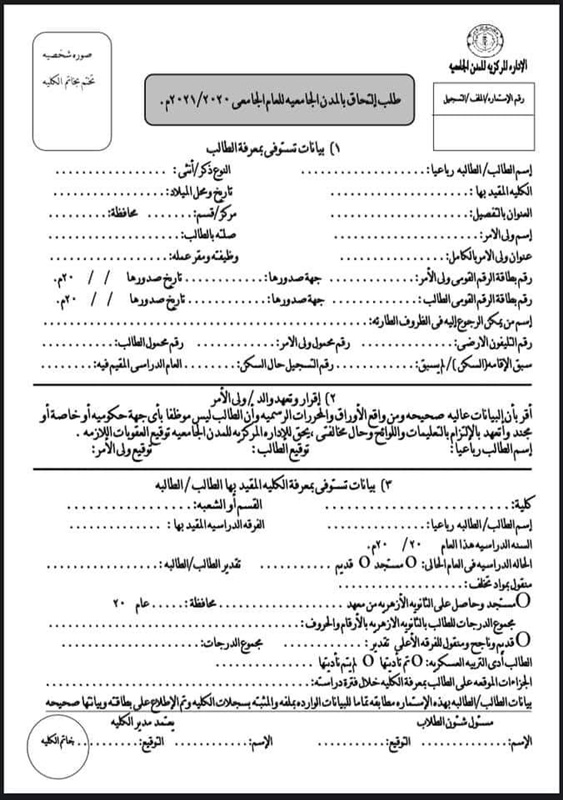 الإداره المركزيه للمدن الجامعيه
صوره شخصيه
تختم بخاتم الكليه
رقم الإستماره/الملف/التسجيل
طلب إلتحاق بالمدن الجامعيه للعام الجامعى ٢٠٢١/٢٠٢٠م.
١) بيانات تستوفى بمعرفة الطالب
إسم الطالب/الطالبه رباعيا: .................. النوع ذكر/أنثى: .................
الكليه المقيد بها: .................. تاريخ ومحل الميلاد: .................
العنوان بالتفصيل: .................. مركز/قسم: ....... محافظة: .........
إسم ولى الامر: .................. صلته بالطالب: .................
عنوان ولى الامر بالكامل: .................. وظيفته ومقر عمله: .................
رقم بطاقة الرقم القومى ولى الأمر: ............ جهة صدورها: ............ تاريخ صدورها / / ٢٠م.
رقم بطاقة الرقم القومى الطالب: ............ جهة صدورها: ............ تاريخ صدورها / / ٢٠م.
إسم من يمكن الرجوع إليه فى الظروف الطارئه: ..................
رقم التليفون الارضى: ............ رقم محمول ولى الامر: ............ رقم محمول الطالب: ............
سبق الإقامه (السكن) / لم يسبق: ............ رقم التسجيل حال السكن: ............ العام الدراسى المقيم فيه: ........
٢) إقرار وتعهد والد / ولى الأمر
أقر بأن البيانات عاليه صحيحه ومن واقع الأوراق والمحررات الرسميه وأن الطالب ليس موظفا بأى جهة حكوميه أو خاصة أو
مجند واتعهد بالإلتزام بالتعليمات واللوائح وحال مخالفتى ,يحق للإداره المركزيه للمدن الجامعيه توقيع العقوبات اللازمه .
إسم الطالب رباعيا: توقيع الطالب : توقيع ولى الأمر:
٣) بيانات تستوفى بمعرفة الكليه المقيد بها الطالب / الطالبه
كلية: .................. القسم أو الشعبه: .................
إسم الطالب/الطالبه رباعيا: .................. الفرقه الدراسيه المقيد بها : .................
السنه الدراسيه هذا العام ٢٠ / ٢٠م.
الحاله الدراسيه فى العام الحالى: O مستجد O قديم ............ تقدير الطالب/الطالبه: .................
منقول بمواد تخلف: .................
O مستجد وحاصل على الثانويه الأزهريه من معهد .................. محافظة: ...... عام ٢٠
مجموع الدرجات للطالب بالثانويه الازهريه بالأرقام والحروف: ..................
O قديم وناجح ومنقول للفرقه الأعلى تقدير : .................. مجموع الدرجات: .................
الطالب أدى التربيه العسكريه: O تم تأديتها O لم يتم تأديتها .................
الجزاءات الموقعه على الطالب بمعرفة الكليه خلال فترة دراسته: ..................
بيانات الطالب/الطالبه بهذه الإستماره مطابقه تماما للبيانات الوارده بملفه والمثبته بسجلات الكليه وتم الإطلاع على بطاقته وبياناتها صحيحه
مسئول شئون الطلاب يعتمد مدير الكليه
الإسم: ............ التوقيع: ............ الإسم: ............ التوقيع: ............ خاتم الكليه